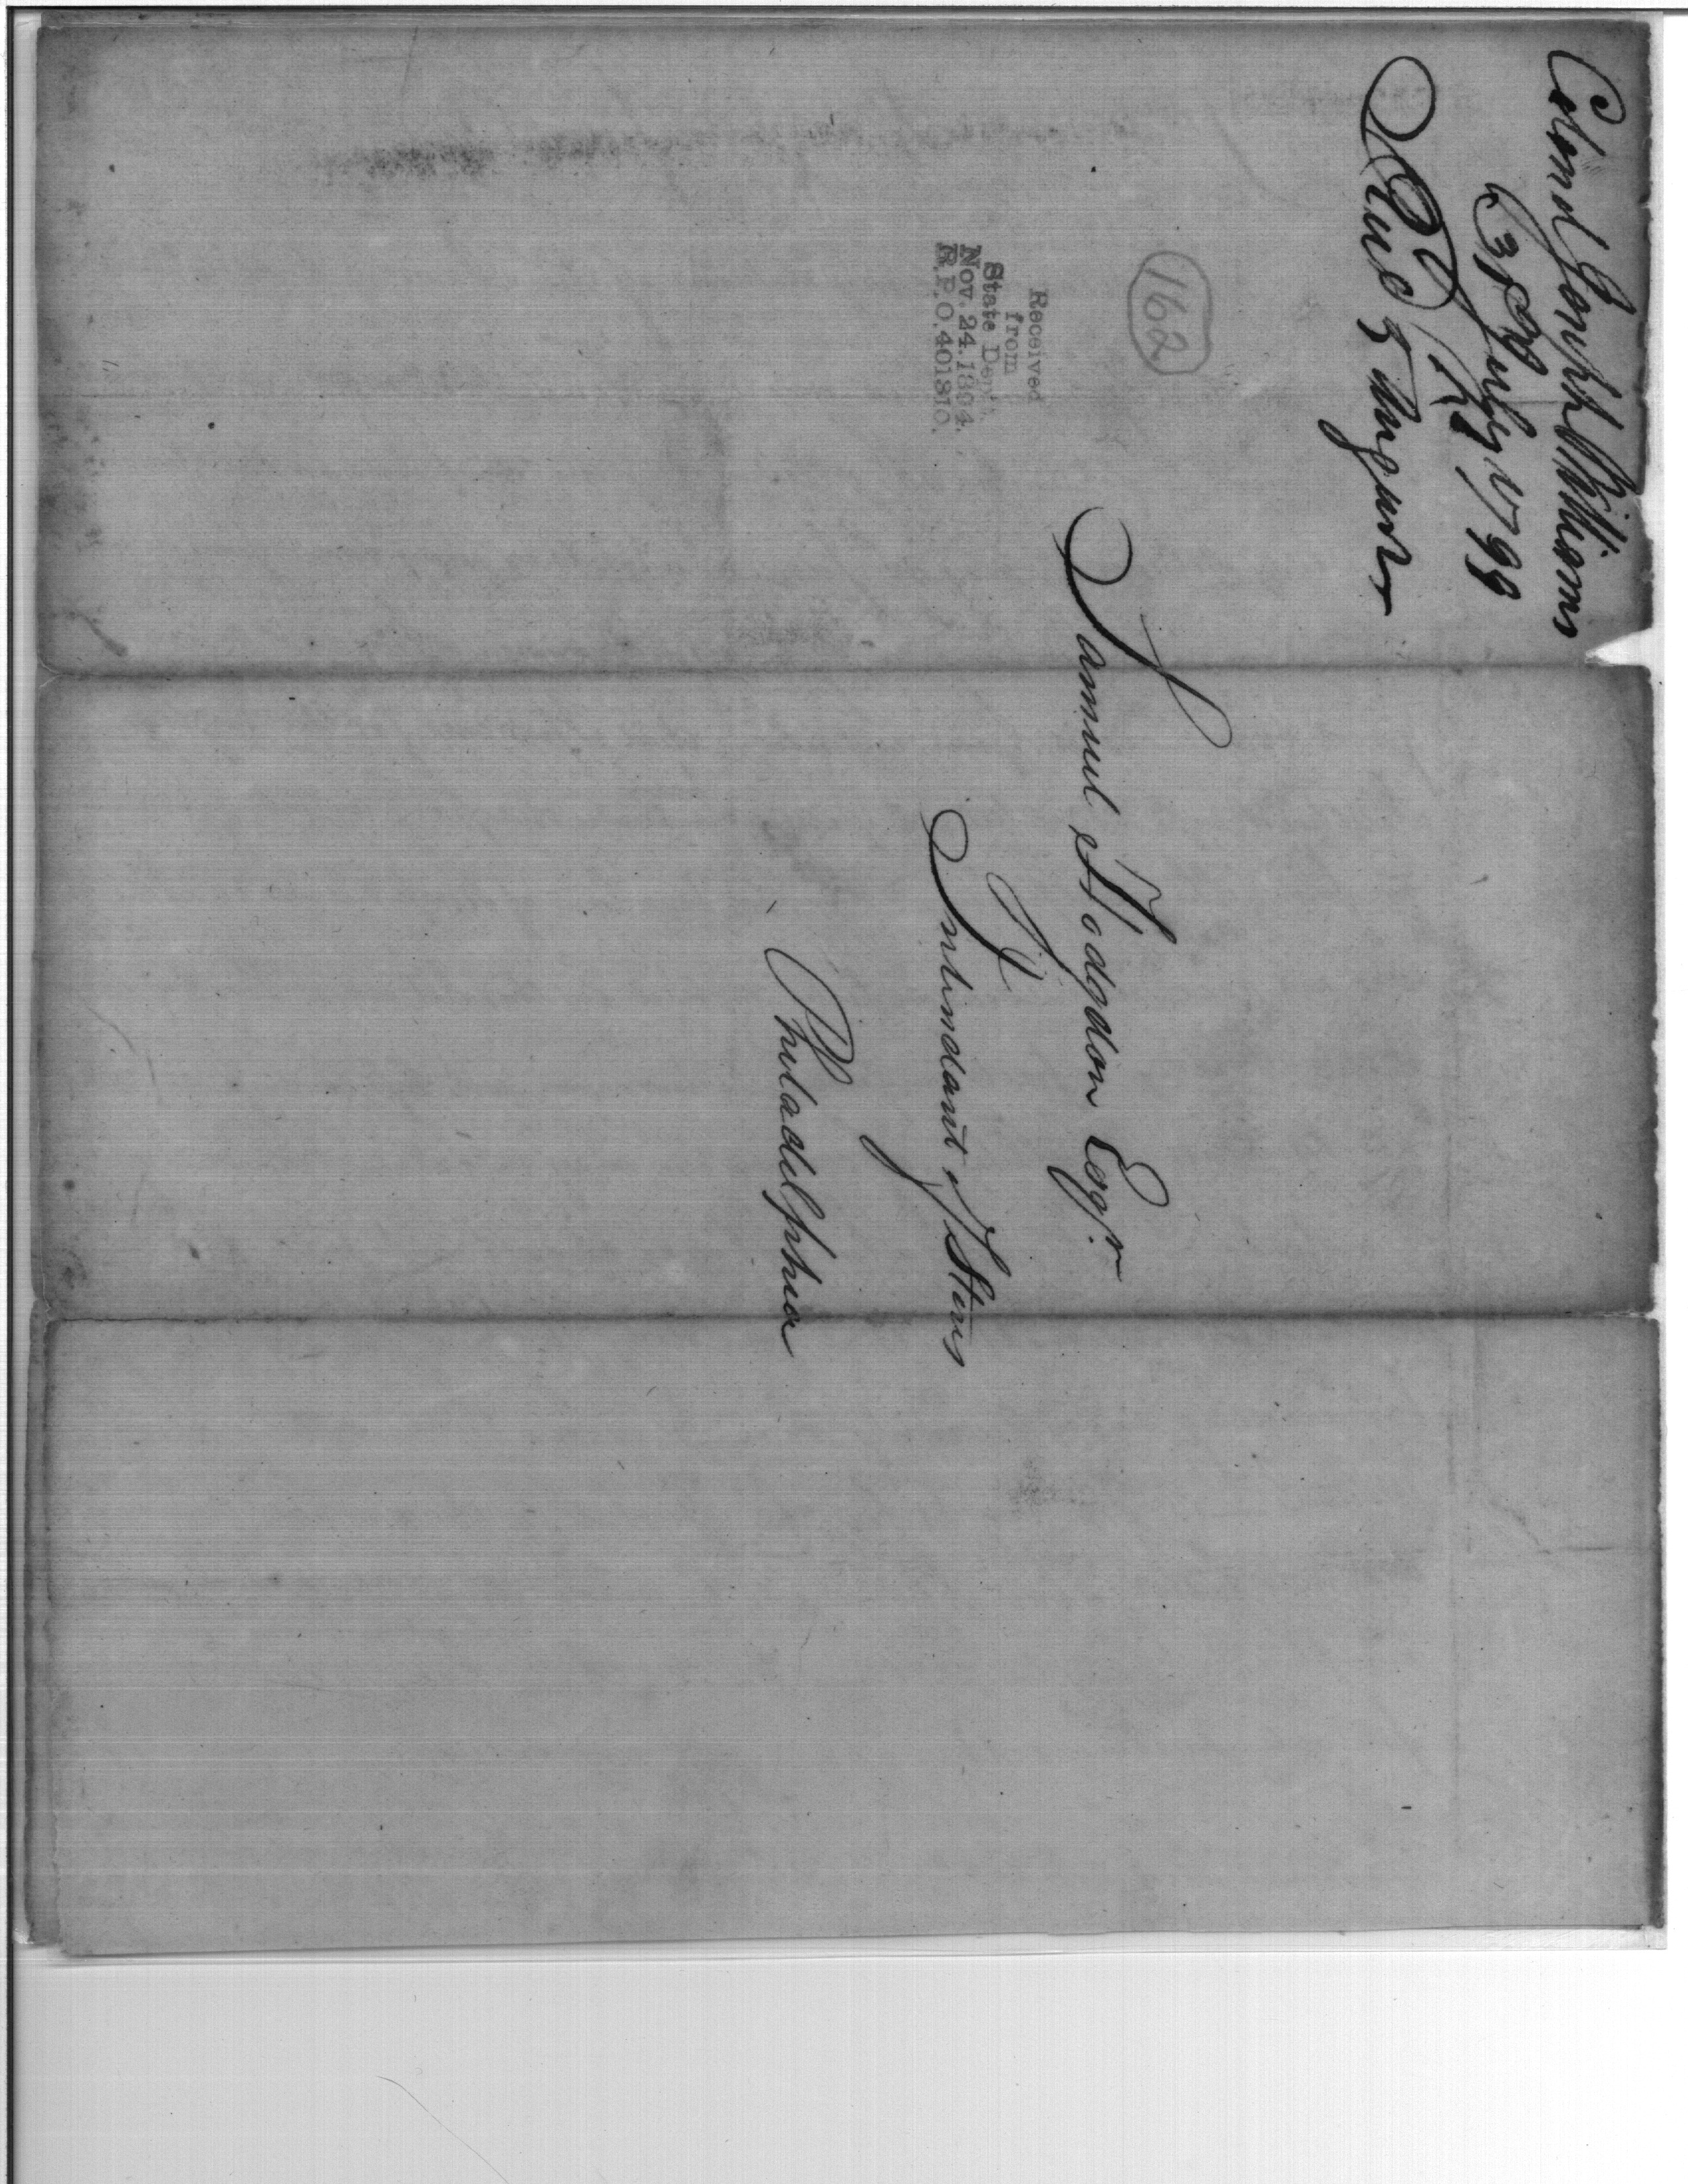 Colonel Joseph Williams
3d July 1799
Recd 5 August
162
Received
from
State Dept.
Nov. 24. 1894.
R.P.O. 401310.
Samuel Hodgdon Esqr.
Intendant of Stores
Philadelphia